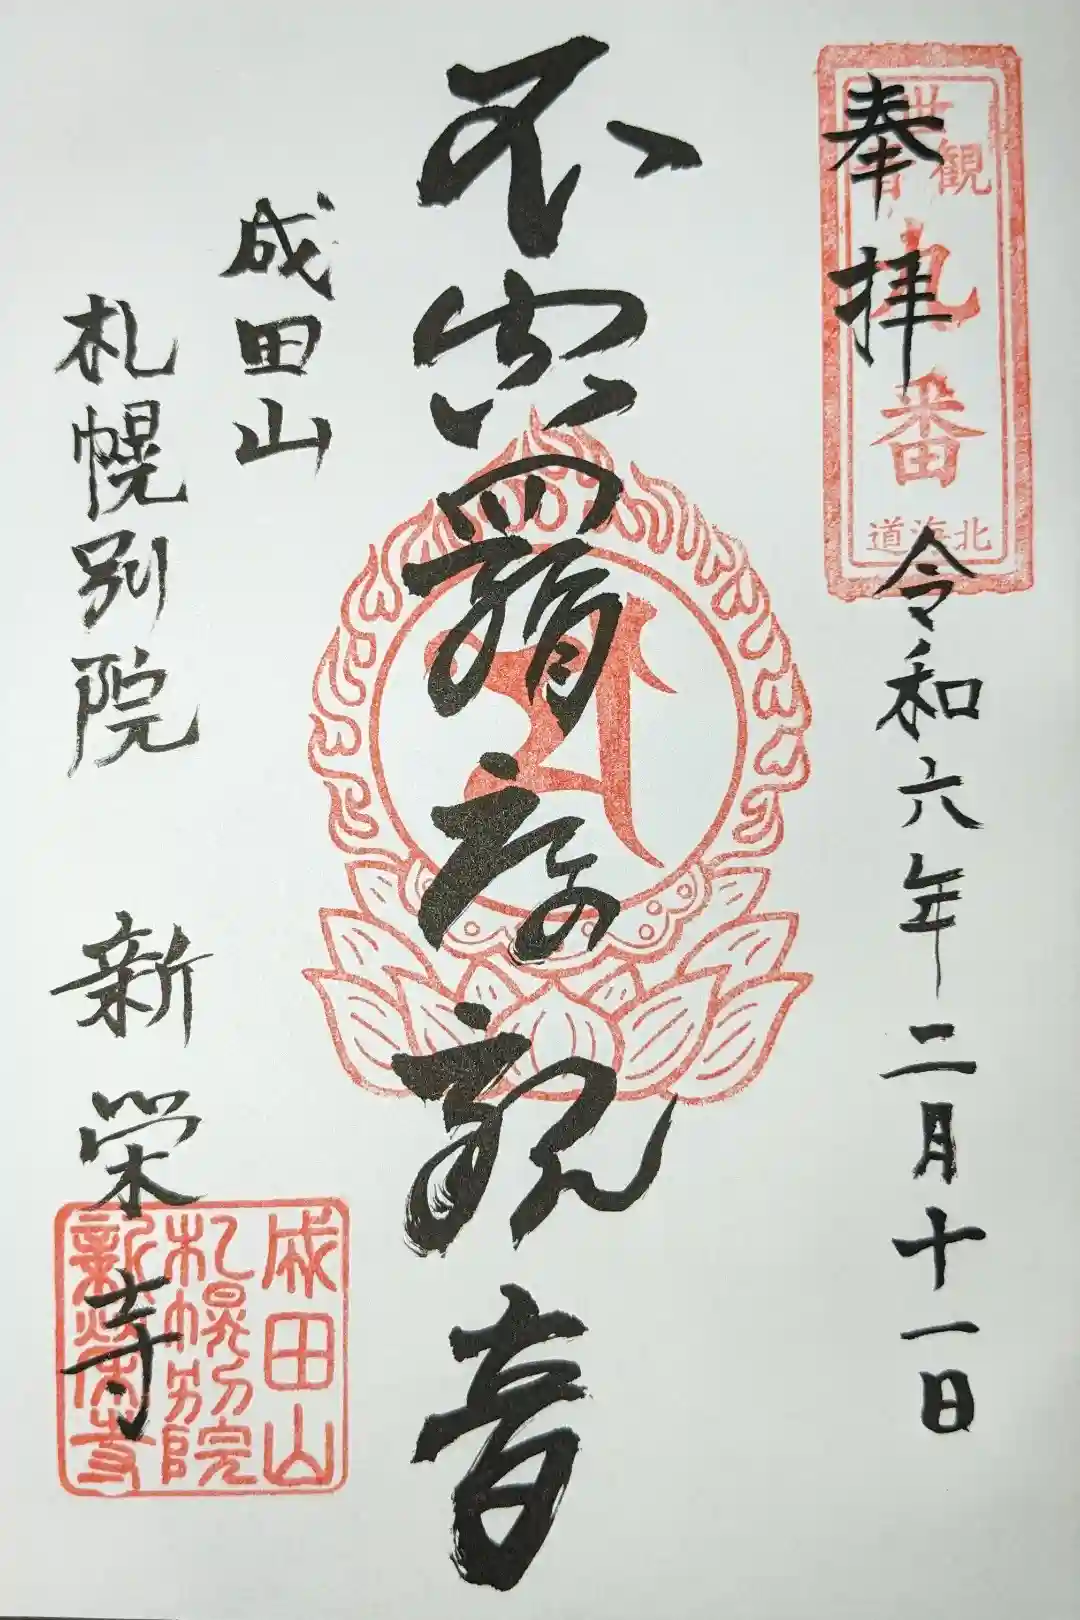 奉拝
令和六年二月十一日
世
観音
九
番
北海道
不空羂索観音
成田山
札幌別院 新栄寺
成田山
札幌別院
新栄寺